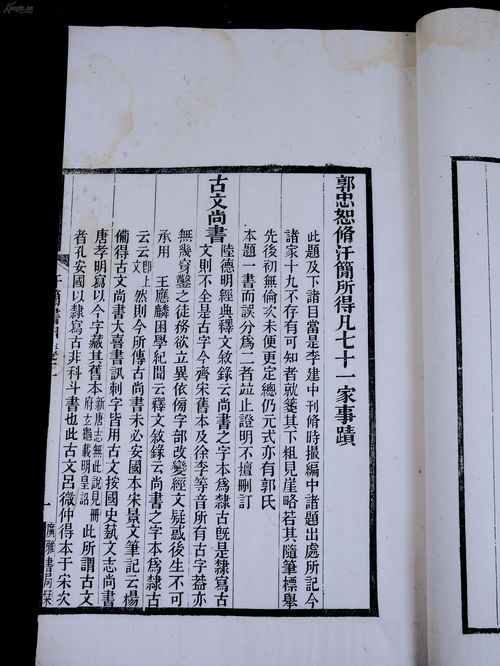 郭忠恕脩汗簡所得凡七十一家事蹟
此題及下諸目當是李建中刊脩時撮編中諸題出處所記今
諸家十九不存有可知者就箋其下粗見崖略若其隨筆標舉
先後初無倫次未便更定總仍元式亦有郭氏
本題一書而誤分爲二者竝止證明不擅刪訂
古文尚書
陸德明經典釋文敘錄云尚書之字本爲隸古旣是隸寫古
文則不全是古字今齊宋舊本及徐李等音所有古字葢亦
無幾穿鑿之徒務欲立異依傍字部改變經文疑惑後生不可
承用 王應麟困學紀聞云釋文敘錄云尚書之字本爲隸古
云云卽上文然則今所傳古尚書未必安國本宋景文筆記云楊
備得古文尚書大喜書訊刺字皆用古文按國史藝文志尚書
唐孝明寫以今字藏其舊本新唐志無此說見冊府元龜載明皇詔此所謂古文
者孔安國以隸寫古非科斗書也此古文呂微仲得本于宋次
汗簡書目
一
廣雅書局栞